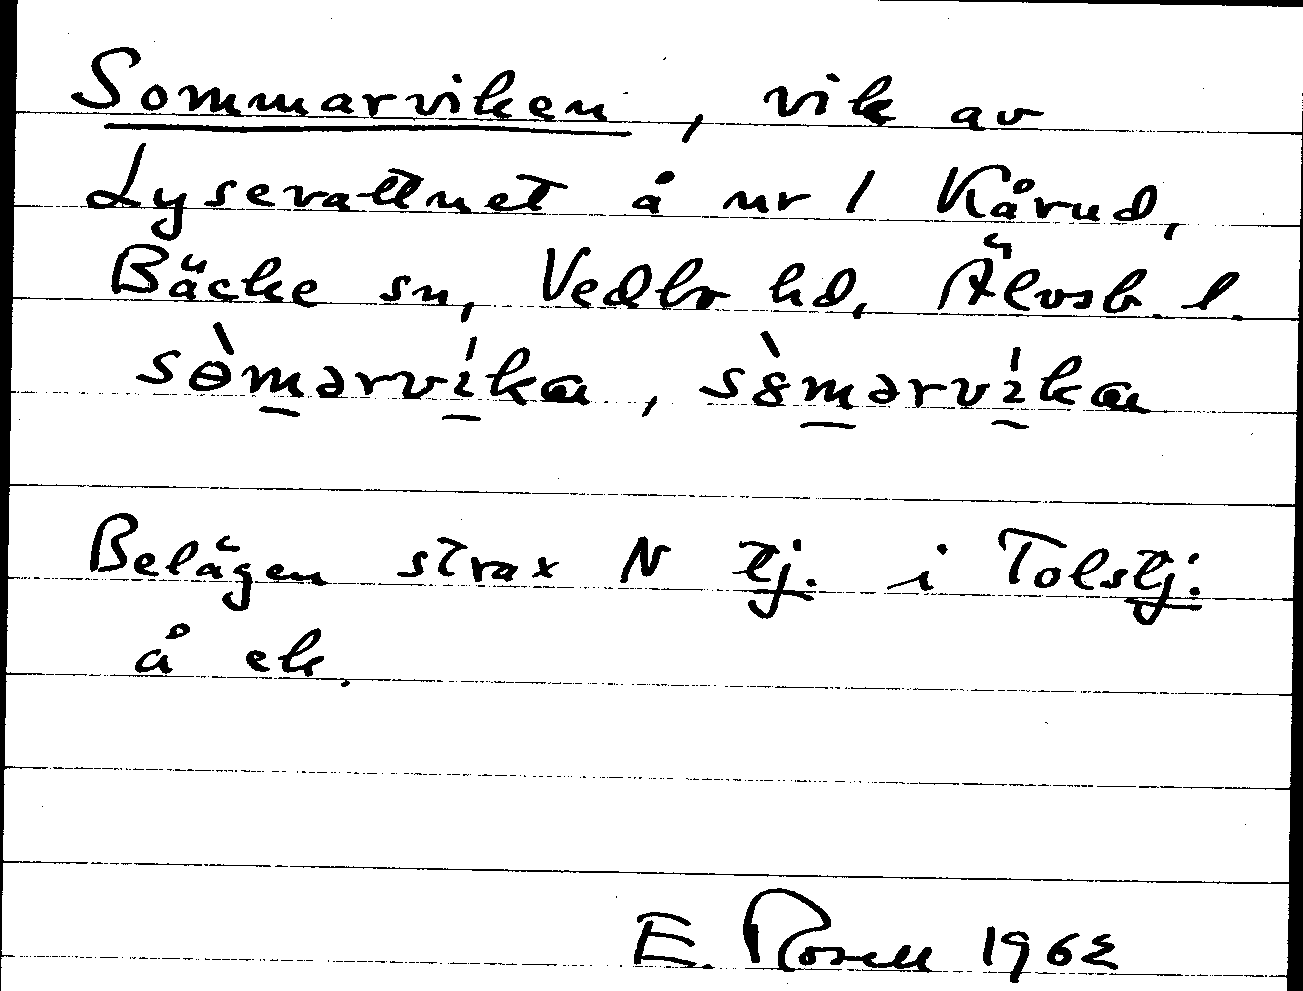 Sommarviken, vik av
Lysevattnet å nr 1 Kårud,
Bäcke sn, Vedbo hd, Älvsb. l.
sɵ̀m̲ərví̲ka, sȣ̀m̲ərví̲ka
Belägen strax N tj. i Tolstj.
å ek.
E. Rosell 1962